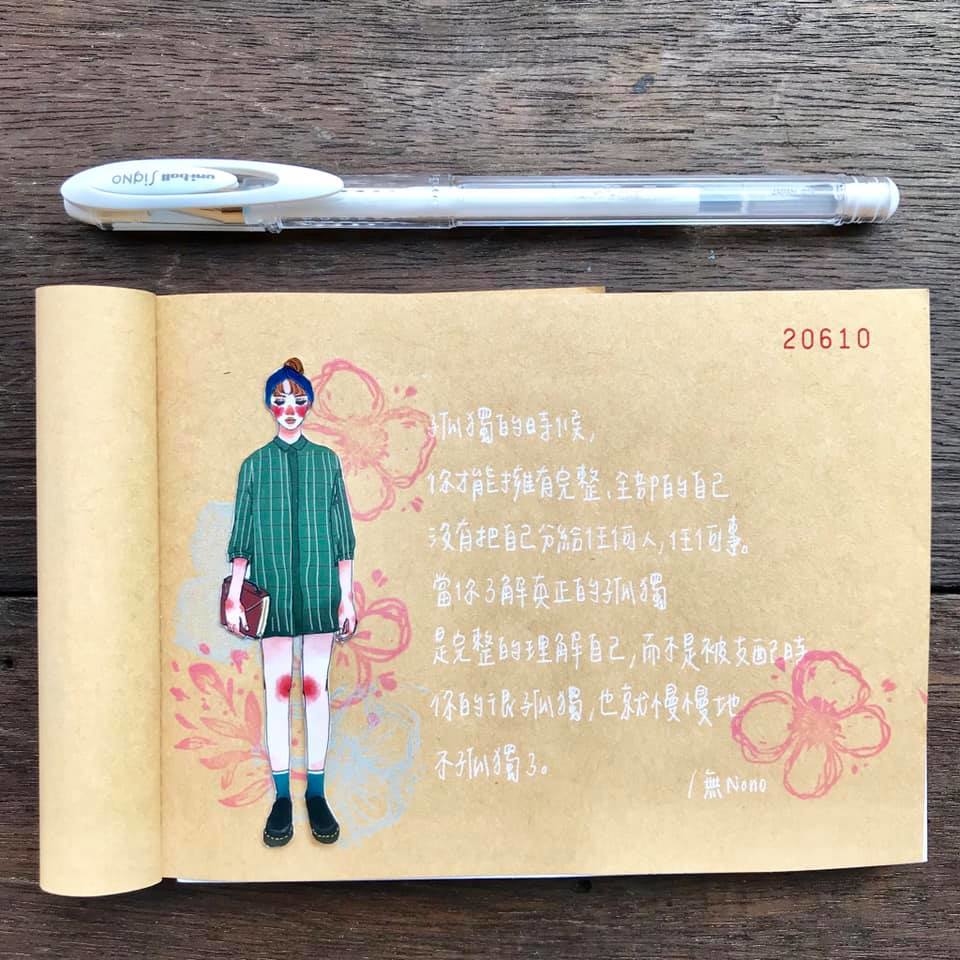 uni-ball SigNO
20610
孤獨的時候,
你才能擁有完整、全部的自己
沒有把自己分給任何人,任何事。
當你了解真正的孤獨
是完整的理解自己,而不是被支配時
你的很孤獨,也就慢慢地
不孤獨了。
/無Nono